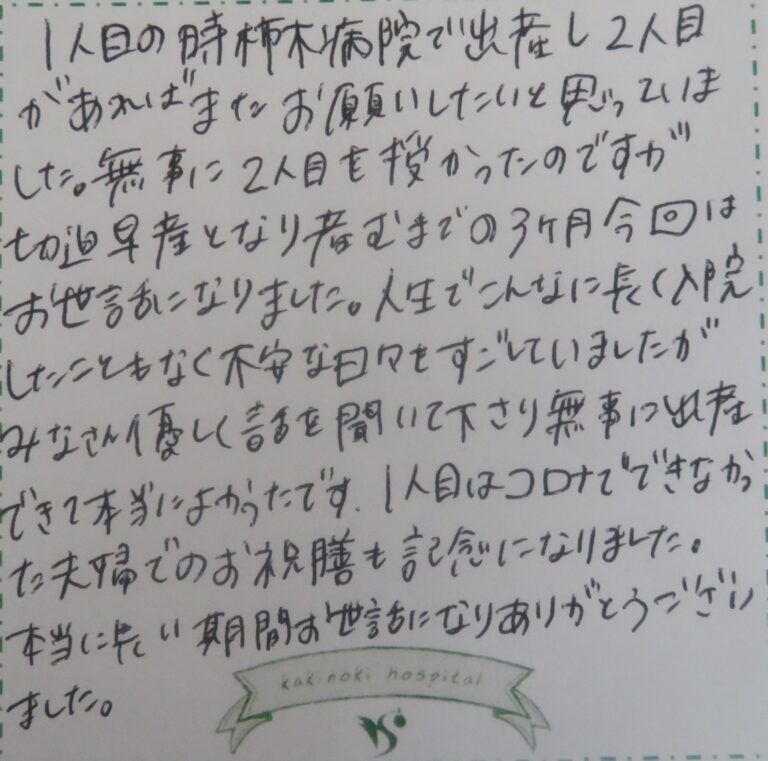 1人目の時柿木病院で出産し2人目
があればまたお願いしたいと思っていま
した。無事に2人目を授かったのですが
切迫早産となり産むまでの3ヶ月今回は
お世話になりました。人生でこんなに長く入院
したこともなく不安な日々をすごしていましたが
みなさん優しく話を聞いて下さり無事に出産
できて本当によかったです。1人目はコロナでできなかっ
た夫婦でのお祝膳も記念になりました。
本当に長い期間お世話になりありがとうござい
ました。
kakinoki hospital